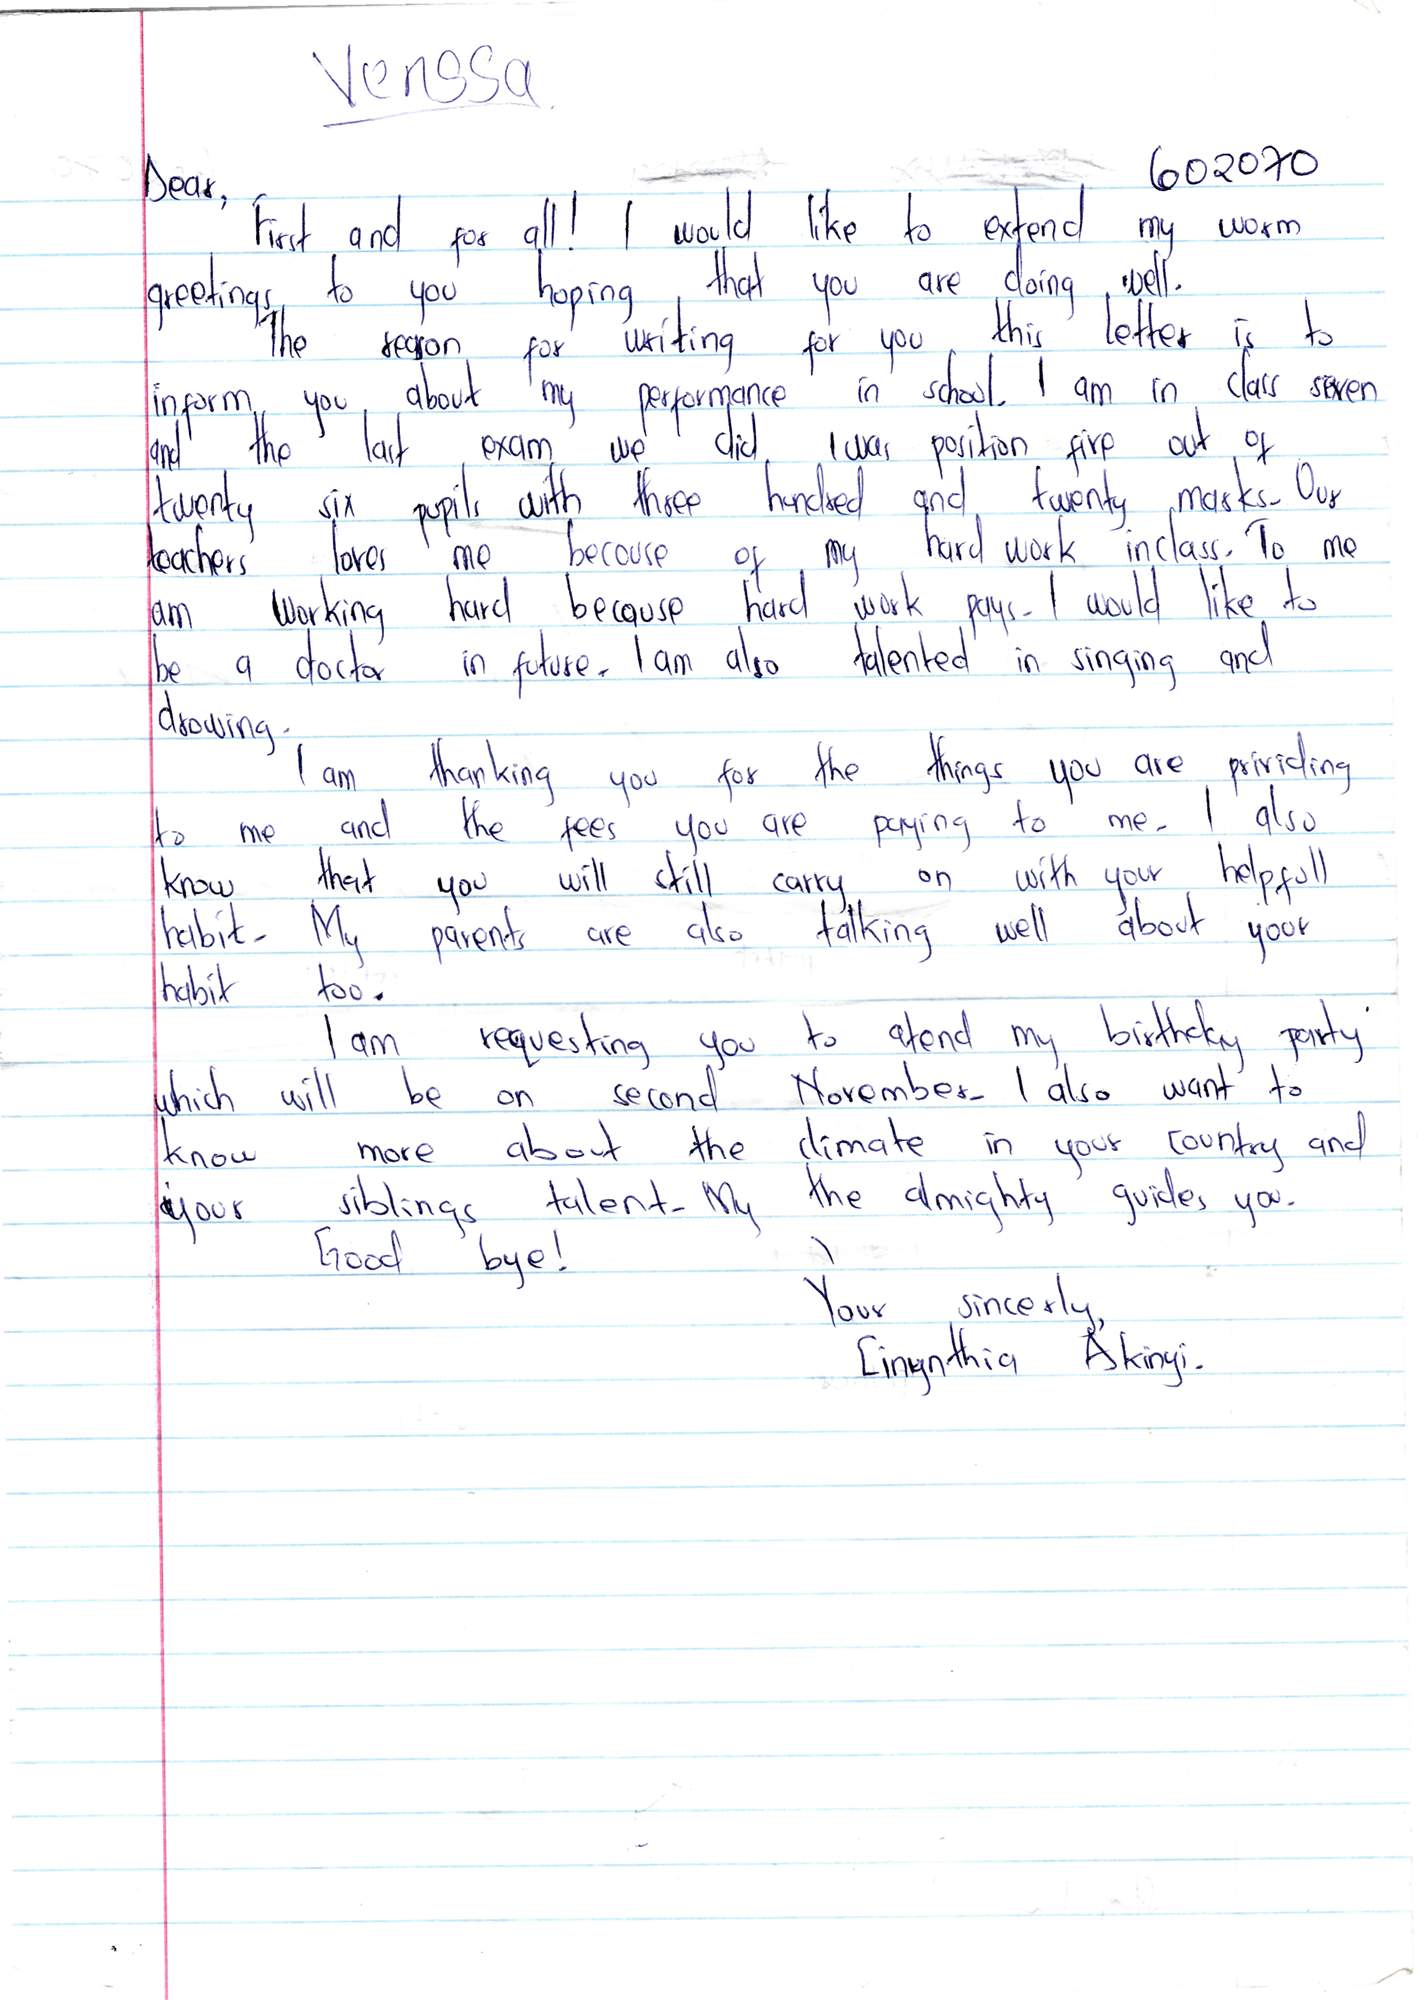 Venssa
602070
Dear,
First and for all! I would like to extend my worm
greetings to you hoping that you are doing well.
The reason for writing for you this letter is to
inform you about my performance in school. I am in class seven
and the last exam we did I was position five out of
twenty six pupils with three hundred and twenty marks. Our
teachers loves me becouse of my hard work inclass. To me
am working hard because hard work pays. I would like to
be a doctor in future. I am also talented in singing and
drowing.
I am thanking you for the things you are prividing
to me and the fees you are paying to me. I also
know that you will still carry on with your helpfull
habit. My parents are also talking well about your
habit too.
I am requesting you to atend my birthday party
which will be on second November. I also want to
know more about the climate in your country and
your siblings talent. My the almighty guides you.
Good bye!
Your sincerly,
Akinyi.